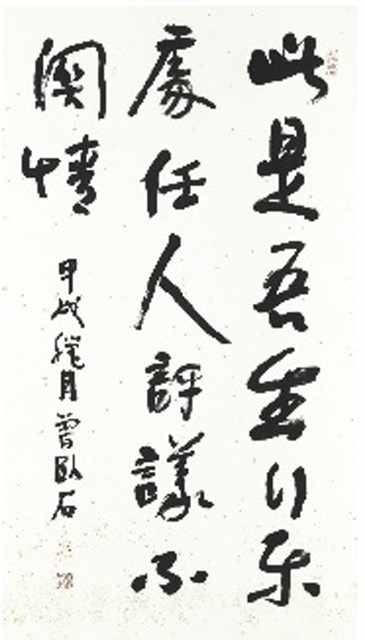 此是吾生行乐
處任人評議不
關情
甲戌月曾臥石